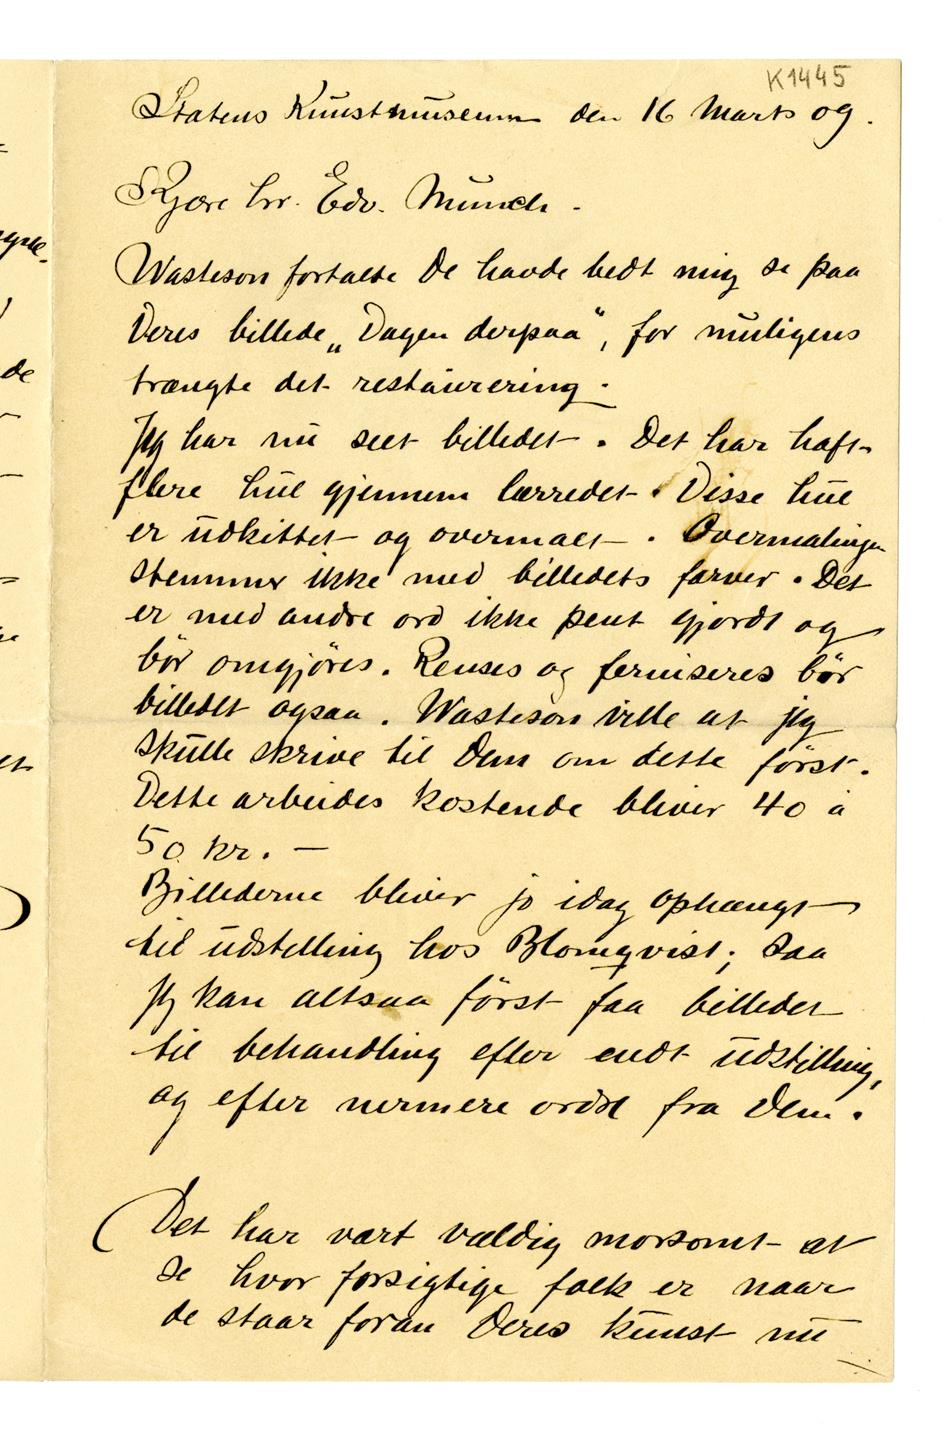 K1445
Statens Kunstmuseum den 16 Marts 09.
Kjære hr. Edv. Munch.
Wasteson fortalte De havde bedt mig se paa
Deres billede „Dagen derpaa“, for muligens
trængte det restaurering.
Jeg har nu seet billedet. Det har haft
flere hul gjennem lærredet. Disse hul
er udkittet og overmalt. Overmalingen
stemmer ikke med billedets farver. Det
er med andre ord ikke pent gjordt og
bör omgjöres. Renses og ferniseres bör
billedet ogsaa. Wasteson vilde at jeg
skulle skrive til Dem om dette först.
Dette arbeides kostende bliver 40 à
50 kr. —
Billederne bliver jo idag ophængt
til udstilling hos Blomqvist; saa
jeg kan altsaa först faa billedet
til behandling efter endt udstilling,
og efter nermere ordre fra Dem.
(Det har vært vældig morsomt at
se hvor forsigtige folk er naar
de staar foran Deres kunst nu